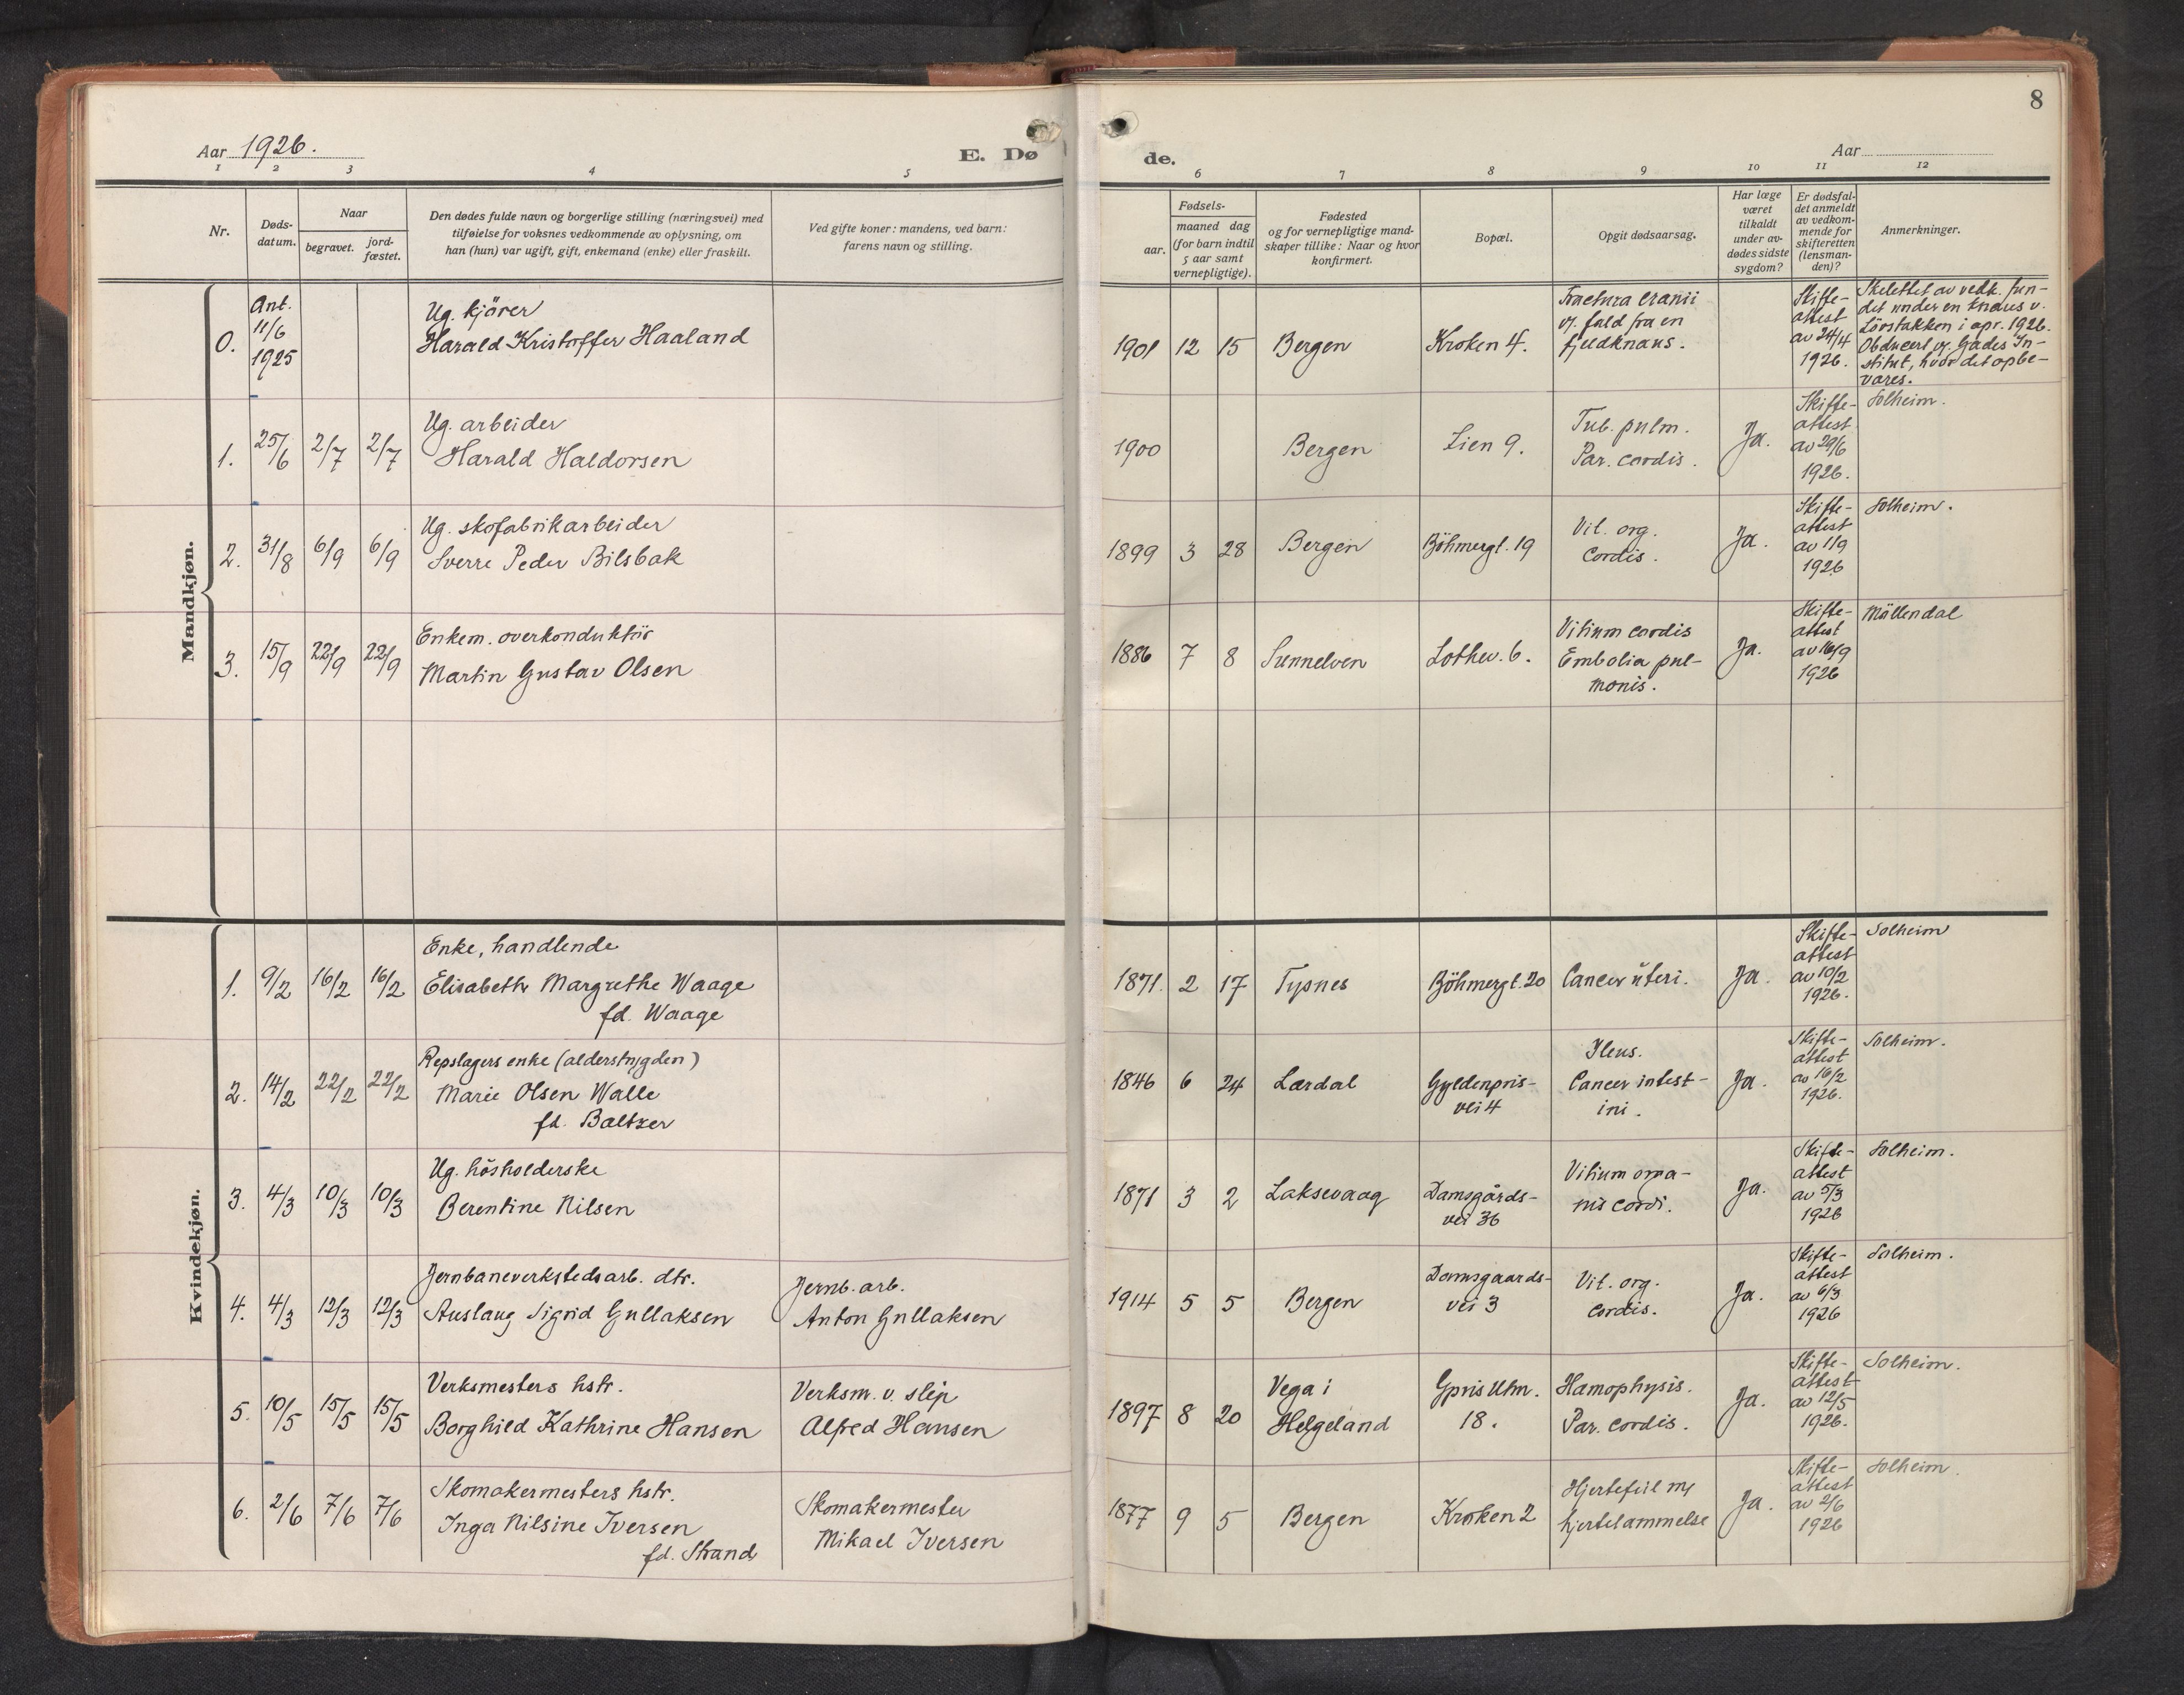 8
Aar 1926.
E. Dø
de.
Aar
1 2 3 4 5 6 7 8 9 10 11 12
Nr.
Døds-
datum.
Naar
begravet.
jord-
fæstet.
Den dødes fulde navn og borgerlige stilling (næringsvei) med
tilføielse for voksnes vedkommende av oplysning, om
han (hun) var ugift, gift, enkemand (enke) eller fraskilt.
Ved gifte koner: mandens, ved barn:
farens navn og stilling.
Fødsels-
aar.
maaned dag
(for barn indtil
5 aar samt
vernepligtige).
Fødested
og for vernepligtige mand-
skaper tillike: Naar og hvor
konfirmert.
Bopæl.
Opgit dødsaarsag.
Har læge
været
tilkaldt
under av-
dødes sidste
sygdom?
Er dødsfal-
det anmeldt
av vedkom-
mende for
skifteretten
(lensman-
den)?
Anmerkninger.
Mandkjøn.
0.
Ant.
11/6
1925
Ug. kjörer
Harald Kristoffer Haaland
1901 12 15 Bergen Kroken 4.
Fractura cranii
v/. fald fra en
fjeldknaus.
Skifte-
attest
av 24/4
1926.
Skelettet av vedk. fun-
det under en knaus v.
Lövstakken i apr. 1926.
Obducert v/. Gades In-
stitut, hvor det opbe-
vares.
1. 25/6 2/7 2/7
Ug. arbeider
Harald Haldorsen
1900 Bergen Lien 9.
Tub. pulm.
Par. cordis.
Ja.
Skifte-
attest
av 29/6
1926.
Solheim.
2. 31/8 6/9 6/9
Ug. skofabrikarbeider
Sverre Peder Bilsbak
1899 3 28 Bergen Böhmergt. 19
Vit. org.
Cordis.
Ja.
Skifte-
attest
av 1/9
1926
Solheim.
3. 15/9 22/9 22/9
Enkem. overkonduktör
Martin Gustav Olsen
1886 7 8 Sunnelven Lothev. 6.
Vitium cordis
Embolia pul-
monis.
Ja.
Skifte-
attest
av 16/9
1926
Möllendal
Kvindekjøn.
1. 9/2 16/2 16/2
Enke, handlende
Elisabeth Margrethe Waage
fd. Waage
1871. 2 17 Tysnes Böhmergt. 20 Cancer ŭteri. Ja.
Skifte-
attest
av 10/2
1926.
Solheim
2. 14/2 22/2 22/2
Repslagers enke (alderstrygden)
Marie Olsen Walle
fd. Baltzer
1846 6 24 Lærdal
Gyldenpris-
vei 4
Ileus.
Cancer intest-
ini.
Ja.
Skifte-
attest
av 16/2
1926.
Solheim.
3. 4/3 10/3 10/3
Ug. hösholderske
Berentine Nilsen
1871 3 2 Laksevaag
Damsgårds-
vei 36
Vitium orga-
nis cordi.
Ja.
Skifte-
attest
av 5/3
1926
Solheim.
4. 4/3 12/3 12/3
Jernbaneverkstedsarb. dtr.
Auslaug Sigrid Gullaksen
Jernb. arb.
Anton Gullaksen
1914 5 5 Bergen
Damsgaards-
vei 3
Vit. org.
Cordis.
Ja.
Skifte-
attest
av 6/3
1926
Solheim.
5. 10/5 15/5 15/5
Verksmesters hstr.
Borghild Kathrine Hansen
Verksm. v. slip
Alfred Hansen
1897 8 20
Vega i
Helgeland
Gpris Uhn.
18.
Hamophysis.
Par. cordis.
Ja.
Skifte-
attest
av 12/5
1926.
Solheim.
6. 2/6 7/6 7/6
Skomakermesters hstr.
Inga Nilsine Iversen
fd. Strand
Skomakermester
Mikael Iversen
1877 9 5 Bergen Kroken 2
Hjertefeil m/
hjertelammelse
Ja.
Skifte-
attest
av 2/6
1926
Solheim.